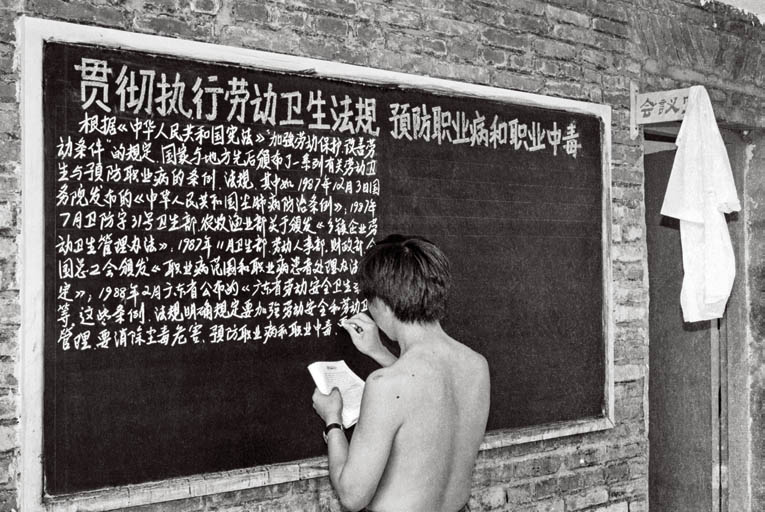 贯彻执行劳动卫生法规 预防职业病和职业中毒
根据《中华人民共和国宪法》“加强劳动保护,改善劳
动条件”的规定,国家和地方先后颁布了一系列有关劳动卫
生与预防职业病的条例、法规。其中如1987年12月3日国
务院发布的《中华人民共和国尘肺病防治条例》;1987年
7月卫防字31号卫生部、农牧渔业部关于颁发《乡镇企业劳
动卫生管理办法》;1987年11月卫生部、劳动人事部、财政部、
国总工会颁发《职业病范围和职业病患者处理办法
定》;1988年2月广东省公布的《广东省劳动安全卫生
等。这些条例、法规明确规定要加强劳动安全和劳动卫
管理,要消除尘毒危害,预防职业病和职业中毒.
会议